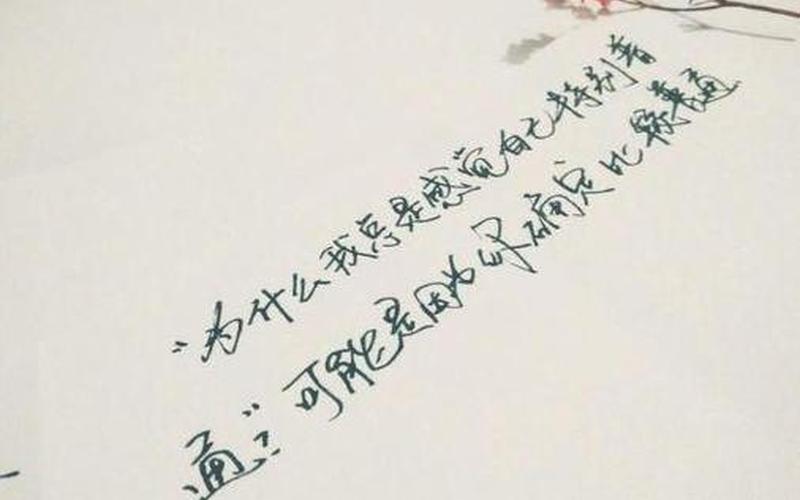 “为什么我总是感觉自己特别普
通”？可能是因为你确定比较普通